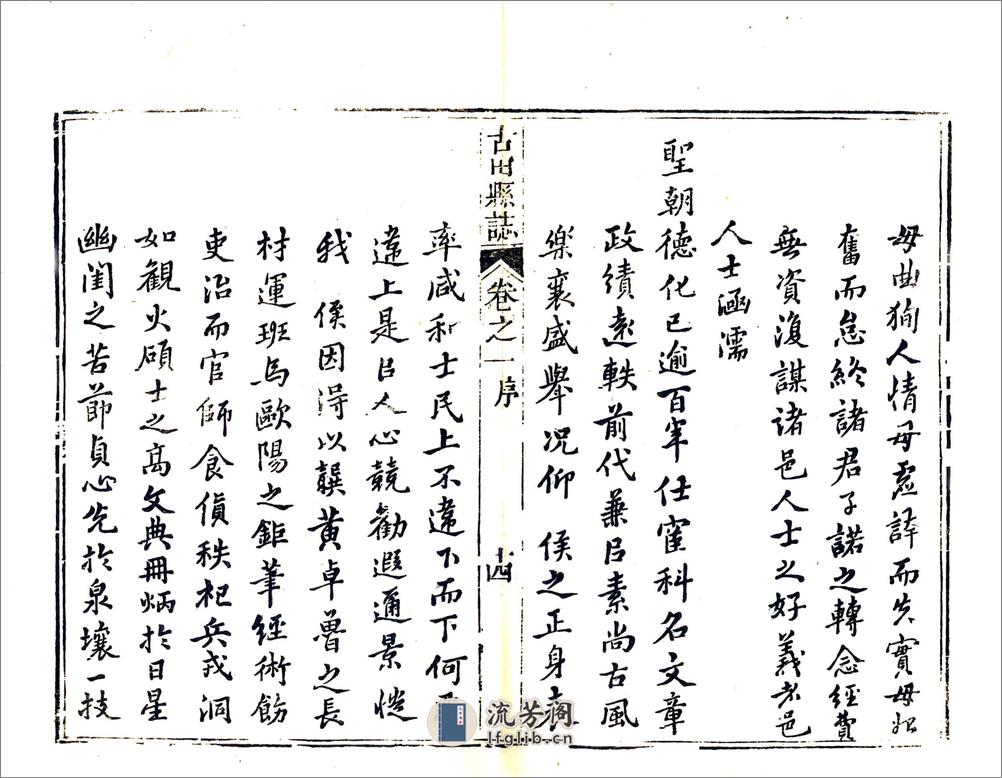 毋曲狥人情毋虛誇而失實毋始
奮而怠終諸君子諾之轉念經費
無資復謀諸邑人士之好義者邑
人士涵濡
聖朝德化已逾百年仕宦科名文章
政績遠軼前代兼邑素尚古風
樂襄盛舉況仰　侯之正身
古田縣誌　卷之一　序　十四
率咸和士民上不違下而下何
違上是邑人心競勸遐邇景從
我　侯因得以龔黃卓魯之長
材運班馬歐陽之鉅筆經術飭
吏治而官師食貨秩祀兵戎洞
如觀火碩士之高文典冊炳於日星
幽閨之苦節貞心先於泉壤一技
流芳阁
lfglib.cn